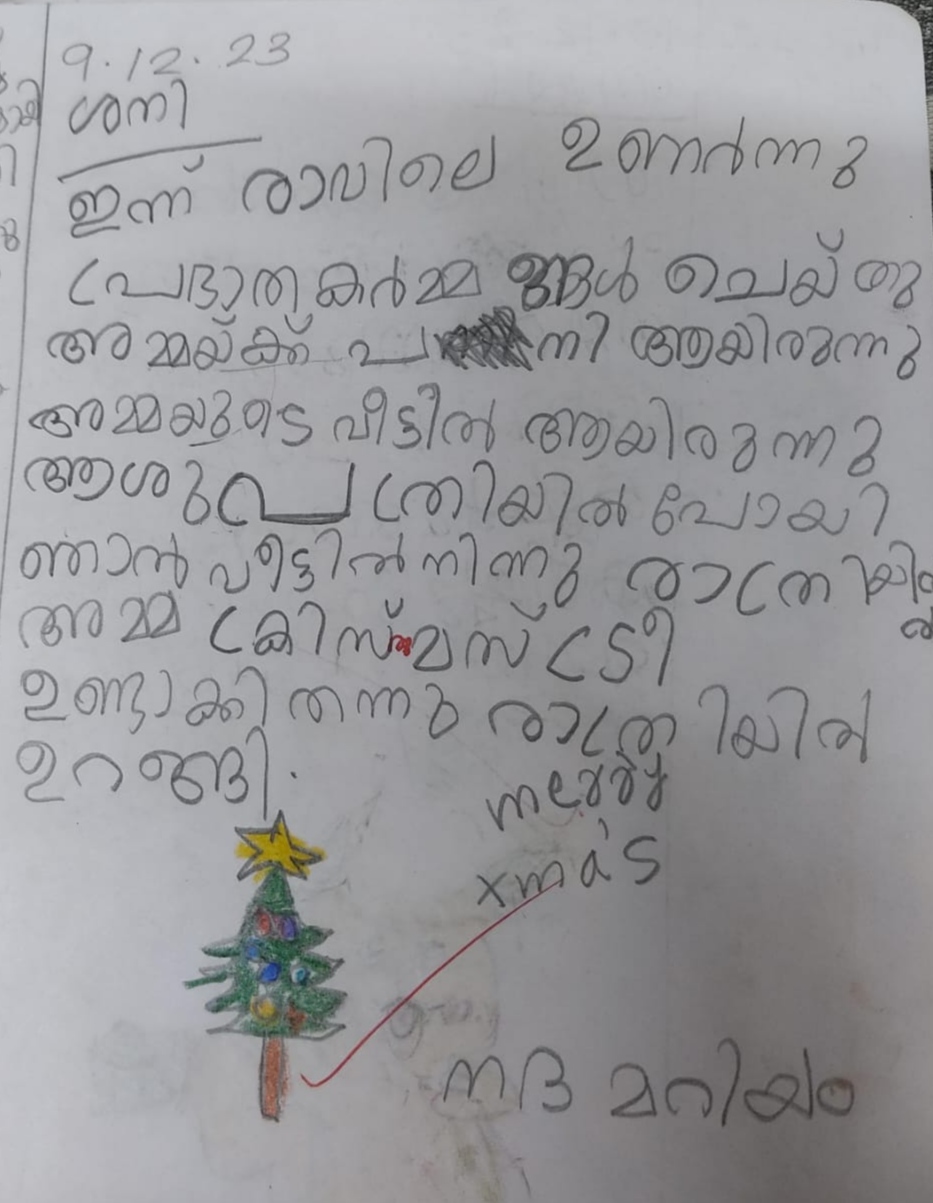 9.12.23
ശനി
ഇന്ന് രാവിലെ ഉണർന്നു
പ്രഭാതകർമ്മങ്ങൾ ചെയ്തു
അമ്മയ്ക്ക് പനി ആയിരുന്നു
അമ്മയുടെ വീട്ടിൽ ആയിരുന്നു
ആശുപത്രിയിൽ പോയി
ഞാൻ വീട്ടിൽ നിന്നു രാത്രിയിൽ
അമ്മ ക്രിസ്മസ് ട്രീ
ഉണ്ടാക്കി തന്നു രാത്രിയിൽ
ഉറങ്ങി.
merry
xma's
നദ മറിയം